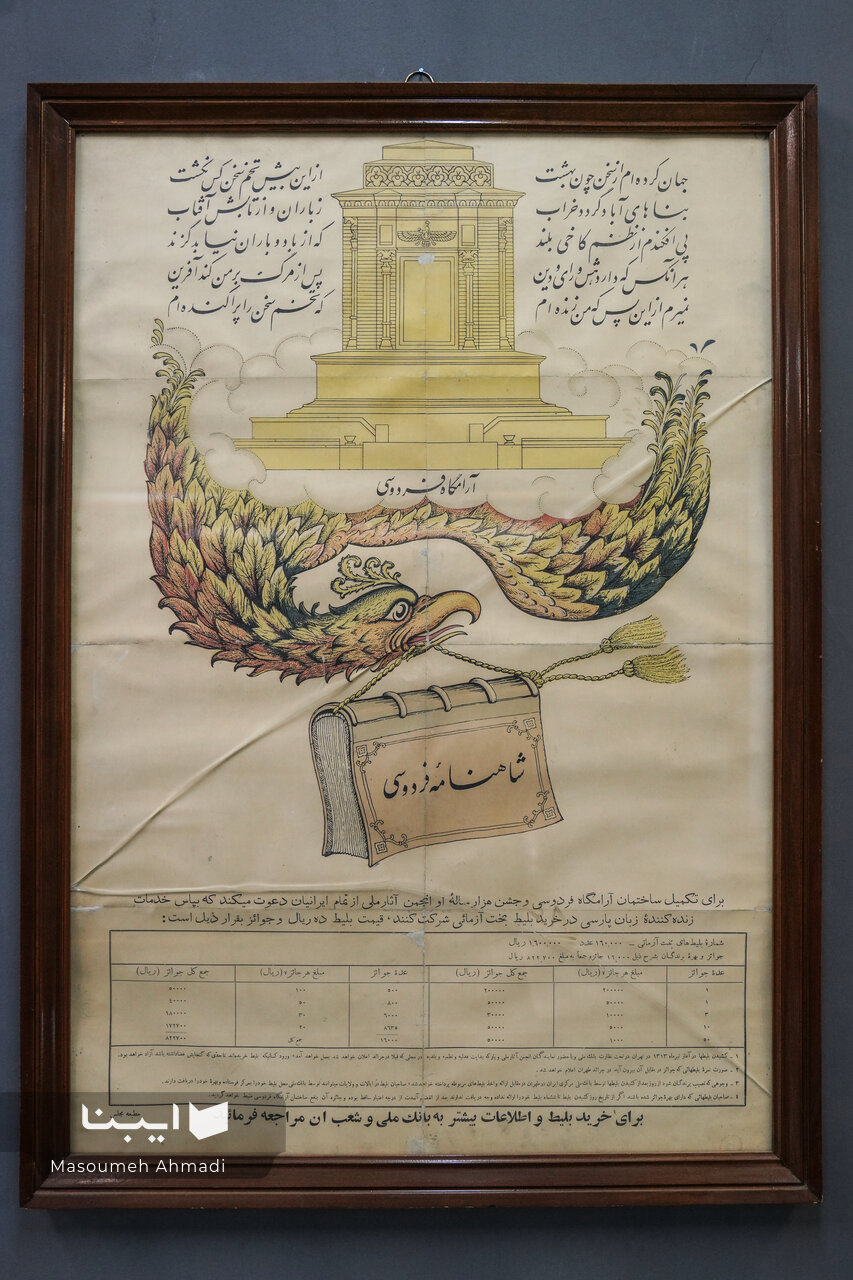 جهان کرده ام از سخن چون بهشت
از این بیش تخم سخن کس نکشت
بنا های آباد گردد خراب
ز باران و از تابش آفتاب
پی افکندم از نظم کاخی بلند
که از باد و باران نیابد گزند
هر آنکس که دارد هش و رای و دین
پس از مرگ بر من کند آفرین
نمیرم از این پس که من زنده ام
که تخم سخن را پراکنده ام
آرامگاه فردوسی
شاهنامهٔ فردوسی
برای تکمیل ساختمان آرامگاه فردوسی و جشن هزار سالهٔ او انجمن آثار ملی از تمام ایرانیان دعوت میکند که بپاس خدمات
زنده کنندهٔ زبان پارسی در خرید بلیط بخت آزمائی شرکت کنند، قیمت بلیط ده ریال و جوائز بقرار ذیل است:
شمارهٔ بلیط های بخت آزمائی ــ ۱۶۰۰۰۰ عدد ۱۶۰۰۰۰۰ ریال
جوائز و بهرهٔ برندگان بشرح ذیل ۱۶٫۰۰۰ جائزه جمعاً به مبلغ ۸۲۲٫۷۰۰ ریال
عدهٔ جوائز مبلغ هر جائزه (ریال) جمع کل جوائز (ریال) عدهٔ جوائز مبلغ هر جائزه (ریال) جمع کل جوائز (ریال)
۱ ۲۰۰۰۰۰ ۲۰۰۰۰۰ ۵۰۰ ۱۰۰ ۵۰۰۰۰
۱ ۵۰۰۰۰ ۵۰۰۰۰ ۸۰۰ ۵۰ ۴۰۰۰۰
۳ ۱۰۰۰۰ ۳۰۰۰۰ ۶۰۰۰ ۳۰ ۱۸۰۰۰۰
۱۰ ۵۰۰۰ ۵۰۰۰۰ ۸۶۳۵ ۲۰ ۱۷۲۷۰۰
۵۰ ۱۰۰۰ ۵۰۰۰۰ ۱۶۰۰۰ جمع کل ۸۲۲۷۰۰
۱ ـ کشیدن بلیطها در آغاز تیر ماه ۱۳۱۳ در تهران در تحت نظارت بانک ملی و با حضور نمایندگان انجمن آثار ملی
۲ ـ صورت نمرهٔ بلیطهائی که جوائز در مقابل آن بیرون آید در جرائد طهران اعلام خواهد شد.
برای خرید بلیط و اطلاعات بیشتر به بانک ملی و شعب آن مراجعه فرمائید
مطبعه مجلس
ایبنا
Masoumeh Ahmadi